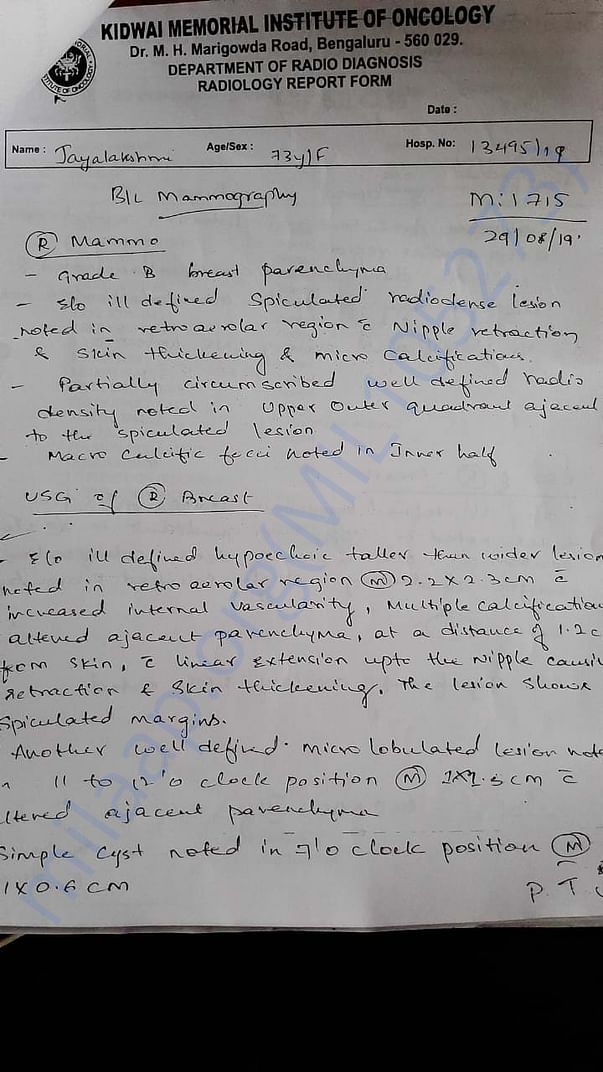 KIDWAI MEMORIAL INSTITUTE OF ONCOLOGY
Dr. M. H. Marigowda Road, Bengaluru - 560 029.
DEPARTMENT OF RADIO DIAGNOSIS
RADIOLOGY REPORT FORM
Date :
Name : Jayalakshmi Age/Sex : 73y/F Hosp. No: 13495/19
B/L Mammography M:1715
29/08/19
(R) Mammo
- Grade B breast parenchyma
- E/o ill defined Spiculated radiodense lesion
noted in retroareolar region c̄ Nipple retraction
& Skin thickening & micro Calcifications.
- Partially circumscribed well defined radio
density noted in Upper Outer quadrant ajacent
to the spiculated lesion
- Macro Calcific focci noted in Inner half
USG of (R) Breast
- E/o ill defined hypoechoic taller than wider lesion
noted in retro aerolar region (M) 2.2x2.3cm c̄
increased internal vascularity, Multiple calcification
altered ajacent parenchyma, at a distance of 1.2c
from skin, c̄ linear extension upto the Nipple causi
retraction & Skin thickening. The lesion shows
Spiculated margins.
Another well defined microlobulated lesion note
11 to 12'o clock position (M) c̄
ltered ajacent parenchyma
Simple Cyst noted in 7'o clock position (M)
1x0.6 cm
P. T.
milaap.org(MIL1052773)